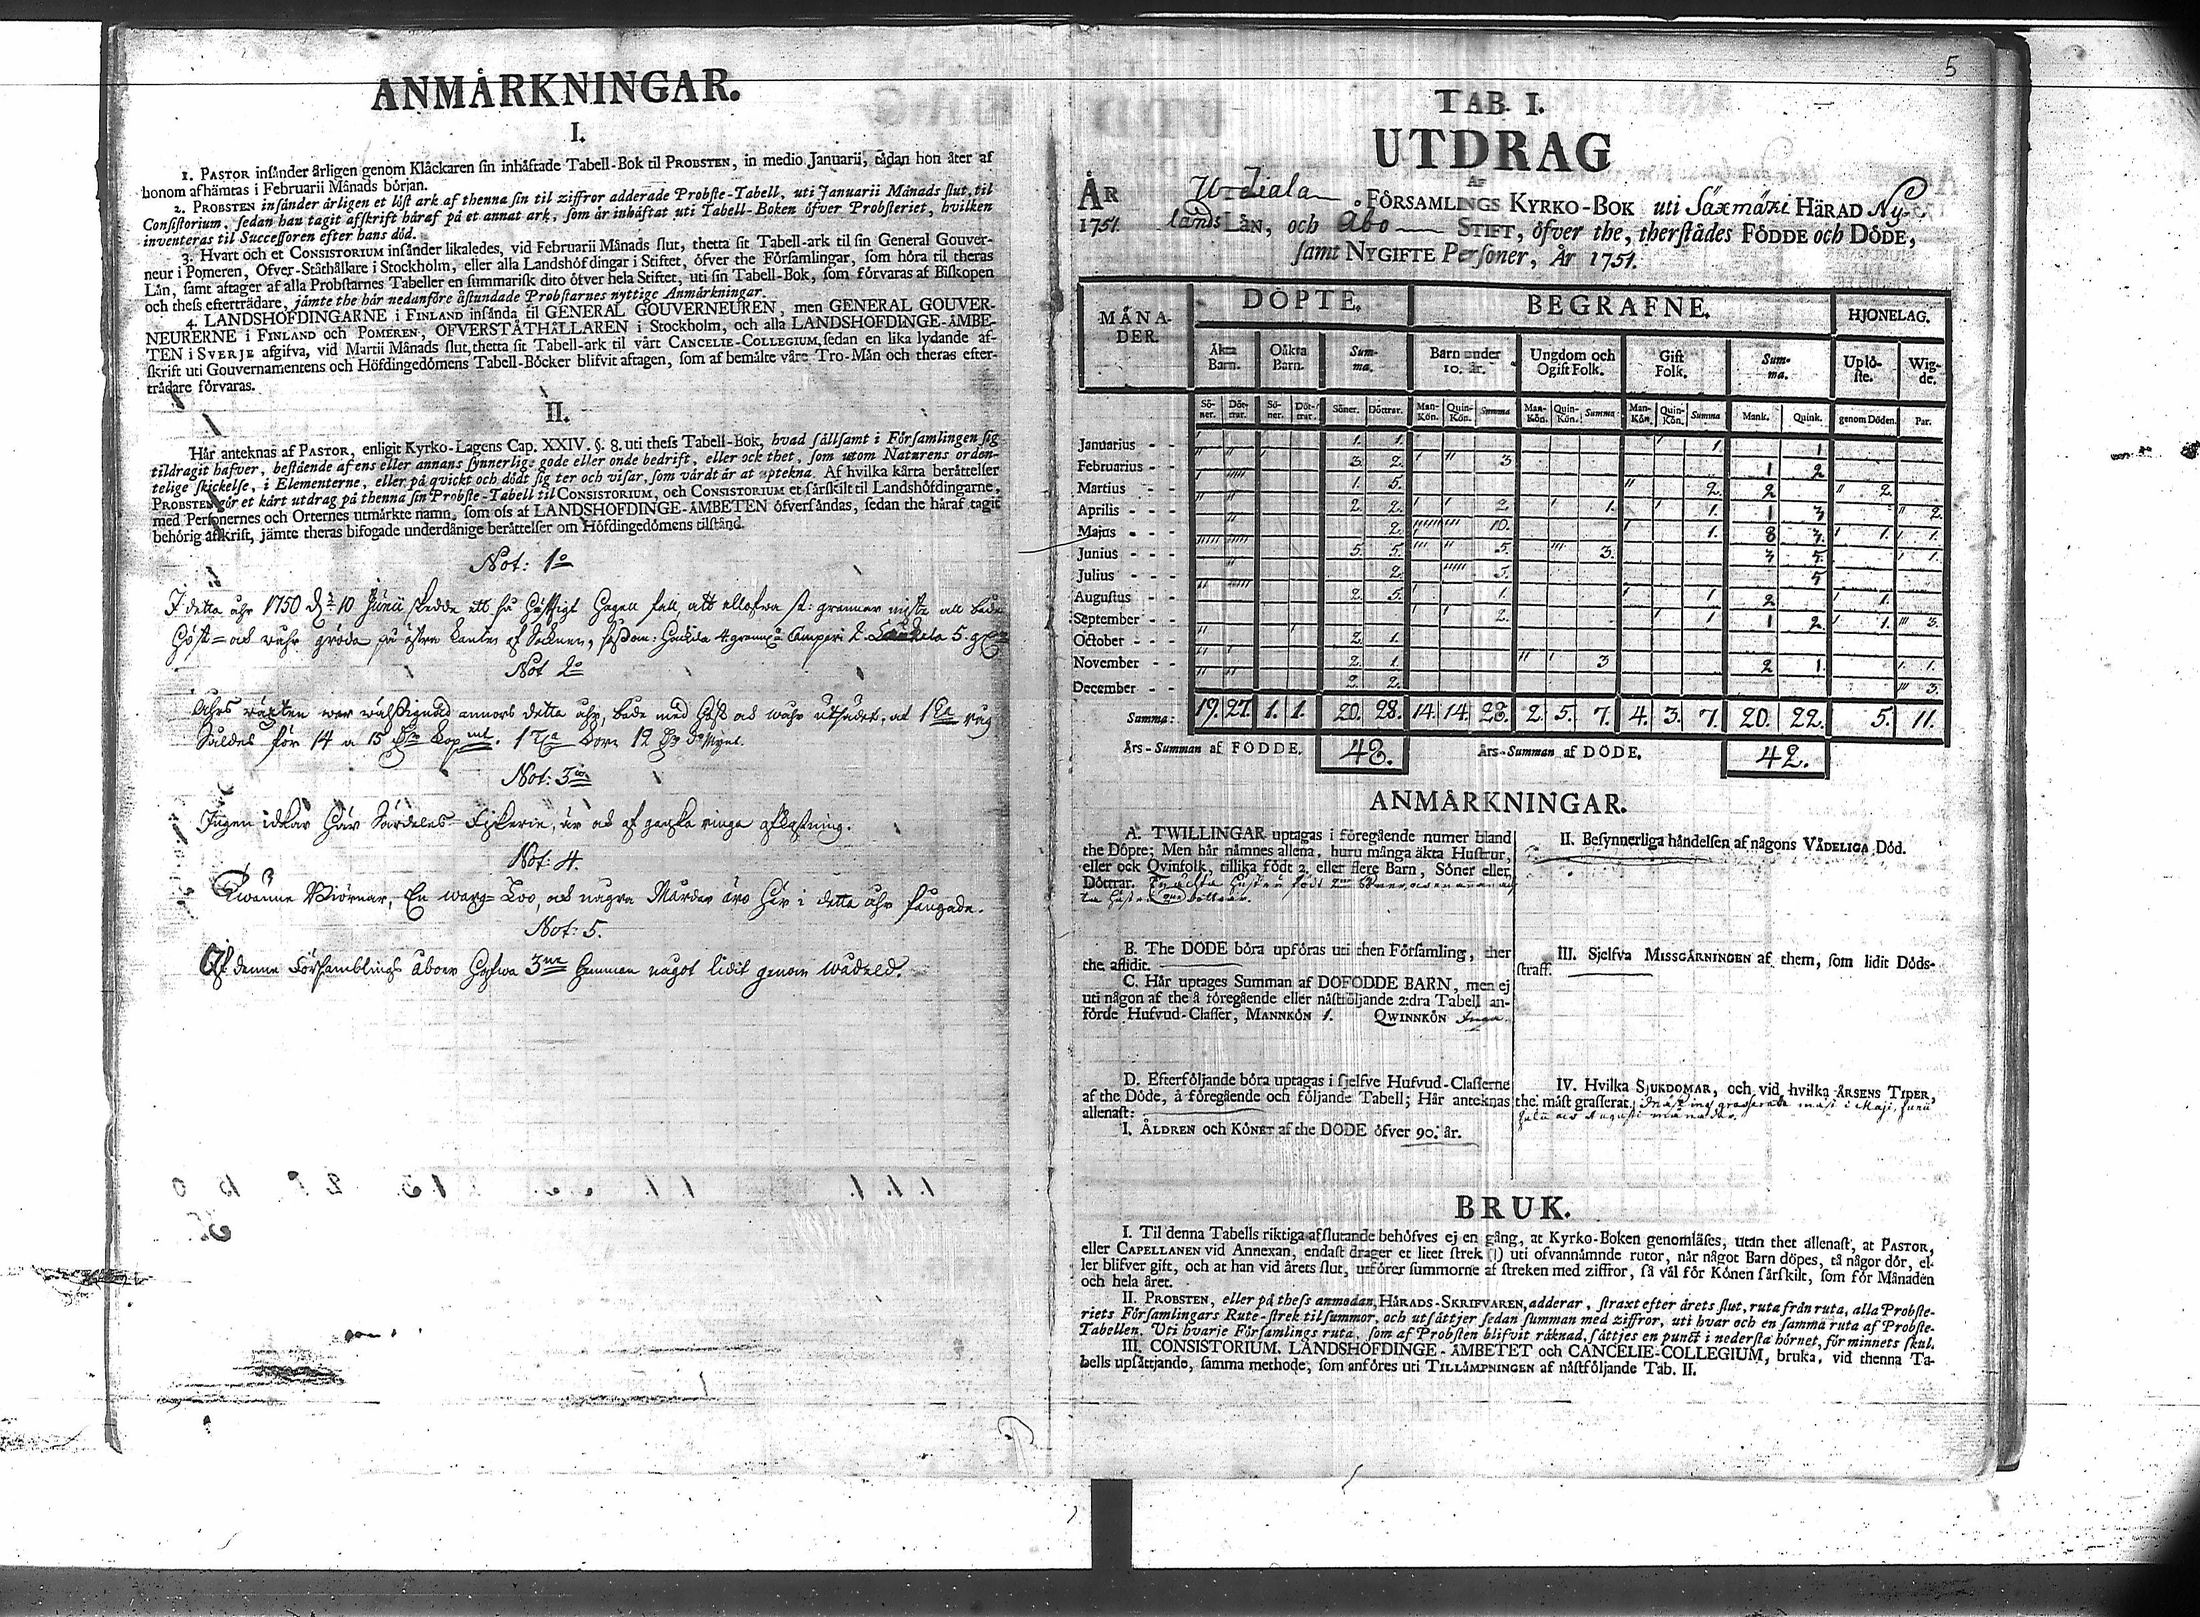 ANMÅRKNINGAR.
I.
1. PASTOR insånder årligen genom Klåckaren sin inhåftade Tabell-Bok til PROBSTEN, in medio Januarii, tådan hon åter af
honom afhämtas i Februarii Månads början.
2. PROBSTEN insånder årligen et löst ark af thenna sin til ziffror adderade Probste-Tabell, uti Januarii Månads slut, til
Consistorium, sedan han tagit afskrift håraf på et annat ark, som år inhåftat uti Tabell-Boken öfver Probsteriet, hvilken
inventeras til Successoren efter hans död.
3. Hvart och et CONSISTORIUM insånder likaledes, vid Februarii Månads slut, thetta sit Tabell-ark til sin General Gouver-
neur i Pomeren, Öfver-Ståthållare i Stockholm, eller alla Landshöfdingar i Stiftet, öfver the Församlingar, som höra til theras
Län, samt aftager af alla Probstarnes Tabeller en summarisk dito öfver hela Stiftet, uti sin Tabell-Bok, som förvaras af Biskopen
och thess efterträdare, jämte the hår nedanföre åstundade Probstarnes nyttige Anmårkningar.
4. LANDSHÖFDINGARNE i FINLAND insånda til GENERAL GOUVERNEUREN, men GENERAL GOUVER-
NEURERNE i FINLAND och POMEREN, ÖFVERSTÅTHÅLLAREN i Stockholm, och alla LANDSHÖFDINGE-ÅMBE-
TEN i SVERJE afgifva, vid Martii Månads slut, thetta sit Tabell-ark til vårt CANCELIE-COLLEGIUM, sedan en lika lydande af-
skrift uti Gouvernamentens och Höfdingedömens Tabell-Böcker blifvit aftagen, som af bemålte våre Tro-Mån och theras efter-
trädare förvaras.
II.
Hår anteknas af PASTOR, enligit Kyrko-Lagens Cap. XXIV. §. 8. uti thess Tabell-Bok, hvad sållsamt i Församlingen sig
tildragit hafver, bestående af ens eller annans synnerlige gode eller onde bedrift, eller ock thet, som utom Naturens orden-
telige skickelse, i Elementerne, eller på qvickt och dödt sig ter och visar, som vårdt år at uptekna. Af hvilka kårta beråttelser
PROBSTEN gör et kårt utdrag på thenna sin Probste-Tabell til CONSISTORIUM, och CONSISTORIUM et sårskilt til Landshöfdingarne,
med Personernes och Orternes utmårkte namn, som oss af LANDSHÖFDINGE-ÅMBETEN öfversåndas, sedan the håraf tagit
behörig afskrift, jämte theras bifogade underdånige beråttelser om Höfdingedömens tilstånd.
Not: 1o
I detta åhr 1750 d. 10 Junii skedde ett så häftigt Hagell fall, att ellofwa st: grannar miste all både
Höst- och wåhr gröda på östra kanten af Socknen,
Not 2o
Åhrs wäxten war wälsignad annors detta åhr, både med Höst och wåhr utsädet, at 1 Tna råg
Såldes för 14 a 15
Not: 3o
Ingen idkar här Särdeles Fiskerie, är och af ganska ringa afkastning.
Not: 4.
Twänne Biörnar, En warg- Loo, och några Mårdar äro här i detta åhr fångade.
Not: 5.
Af denna Församblings åboer Hafwa 3ne Hemman något lidit genom wådeld.
5
TAB. I.
UTDRAG
AF
ÅR Urdiala FÖRSAMLINGS KYRKO-BOK uti Säxmäki HÄRAD Ny-
1751. lands LÄN, och Åbo STIFT, öfver the, therstådes FÖDDE och DÖDE,
samt NYGIFTE Personer, År 1751.
MÅNA- DER. DÖPTE. BEGRAFNE. HJONELAG.
Åkta Barn. Oåkta Barn. Sum- ma. Barn under 10. år. Ungdom och Ogift Folk. Gift Folk. Sum- ma. Uplö- ste. Wig- de.
Sö- ner. Döt- trar. Sö- ner. Döt- trar. Söner. Döttrar. Man- Kön. Quin- Kön. Summa Man- Kön. Quin- Kön. Summa Man- Kön. Quin- Kön. Summa Mank. Quink. genom Döden. Par.
Januarius - - 1. 1. 1. 1
Februarius - - 3. 2. 3. 1 2
Martius - - 1. 5. 2. 2 2.
Aprilis - - 2. 2. 2. 1. 1. 1 3 2.
Majus - - 2. 10. 1. 8 3. 1. 1.
Junius - - 5. 5. 5. 3. 3 5. 1.
Julius - - 2. 5. 5
Augustus - - 2. 5. 1. 1 2 1.
September - - 2. 1 1 2. 1. 3.
October - - 2. 1.
November - - 2. 1. 3 2 1. 1.
December - - 2. 2. 3.
Summa: 19. 27. 1. 1. 20. 28. 14. 14. 28. 2. 5. 7. 4. 3. 7. 20. 22. 5. 11.
Års-Summan af FÖDDE. 48. Års-Summan af DÖDE. 42.
ANMÅRKNINGAR.
A. TWILLINGAR uptagas i föregående numer bland
the Döpte; Men hår nåmnes allena, huru många åkta Hustrur,
eller ock Qvinfolk, tillika födt 2. eller flere Barn, Söner eller
Döttrar.
B. The DÖDE böra upföras uti then Församling, ther
the aflidit.
C. Hår uptages Summan af DÖFÖDDE BARN, men ej
uti någon af the å föregående eller nåstföljande 2:dra Tabell an-
förde Hufvud-Classer, MANNKÖN 1. QWINNKÖN Inga.
D. Efterföljande böra uptagas i sjelfve Hufvud-Classerne
af the Döde, å föregående och följande Tabell; Hår anteknas
allenast:
I. ÅLDREN och KÖNET af the DÖDE öfver 90. år.
II. Besynnerliga håndelsen af någons VÅDELIGA Död.
III. Sjelfva MISSGÄRNINGEN af them, som lidit Döds-
straff.
IV. Hvilka SJUKDOMAR, och vid hvilka ÅRSENS TIDER,
the måst grasserat. Mässling grasserade mäst i Maji, Junii
Julii och Augusti månader.
BRUK.
I. Til denna Tabells riktiga afslutande behöfves ej en gång, at Kyrko-Boken genomläses, utan thet allenast, at PASTOR,
eller CAPELLANEN vid Annexan, endast drager et litet strek (|) uti ofvannåmnde rutor, når något Barn döpes, tå någor dör, el-
ler blifver gift, och at han vid årets slut, utförer summorne af streken med ziffror, så vål för Könen sårskilt, som för Månaden
och hela året.
II. PROBSTEN, eller på thess anmodan, HÅRADS-SKRIFVAREN, adderar, straxt efter årets slut, ruta från ruta, alla Probste-
riets Församlingars Rute-strek til summor, och utsåttjer sedan summan med ziffror, uti hvar och en samma ruta af Probste-
Tabellen. Uti hvarje Församlings ruta, som af Probsten blifvit råknad, såttjes en punct i nedersta hörnet, för minnets skul.
III. CONSISTORIUM, LANDSHÖFDINGE-ÅMBETET och CANCELIE-COLLEGIUM, bruka, vid thenna Ta-
bells upsåttjande, samma methode, som anföres uti TILLÅMPNINGEN af nåstföljande Tab. II.